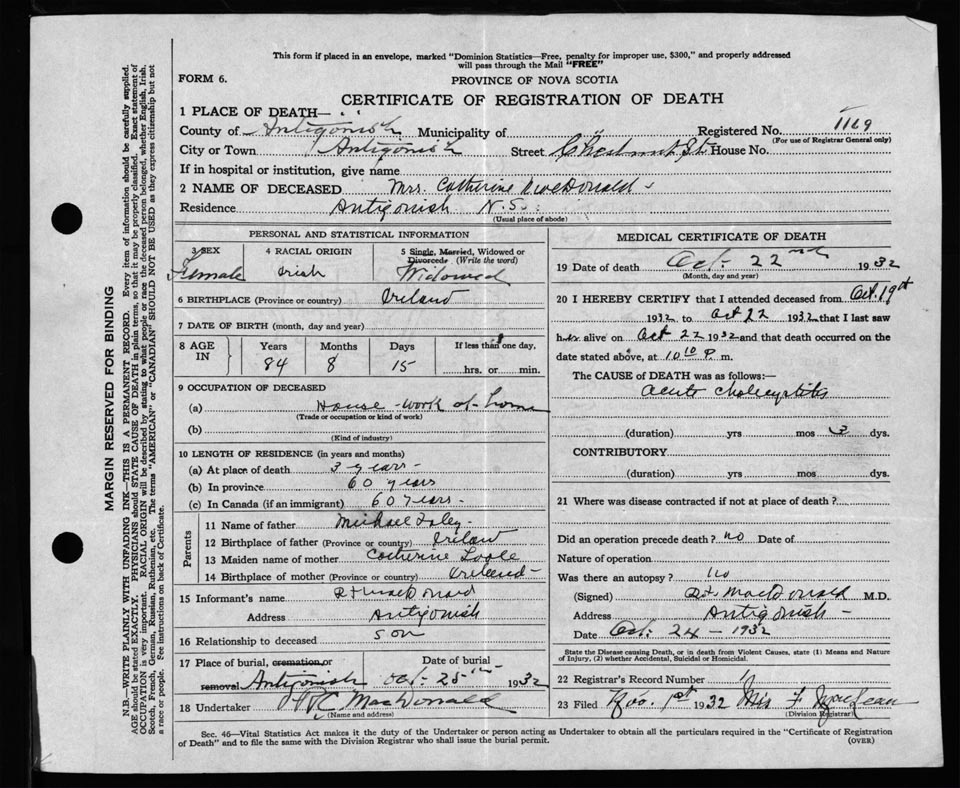 This form if placed in an envelope, marked "Dominion Statistics—Free, penalty for improper use, $300," and properly addressed
will pass through the Mail "FREE"
FORM 6.
PROVINCE OF NOVA SCOTIA
CERTIFICATE OF REGISTRATION OF DEATH
1 PLACE OF DEATH—
County of Antigonish Municipality of " Registered No. 1169
(For use of Registrar General only)
City or Town Antigonish Street Chestnut St. House No.
If in hospital or institution, give name
2 NAME OF DECEASED Mrs. Catherine MacDonald
Residence Antigonish N.S.
(Usual place of abode)
PERSONAL AND STATISTICAL INFORMATION
3 SEX 4 RACIAL ORIGIN 5 Single, Married, Widowed or
Divorced (Write the word)
Female Irish Widowed
6 BIRTHPLACE (Province or country) Ireland
7 DATE OF BIRTH (month, day and year)
8 AGE IN Years Months Days If less than one day,
84 8 15 hrs. or min.
9 OCCUPATION OF DECEASED
(a) House work at home
(Trade or occupation or kind of work)
(b)
(Kind of industry)
10 LENGTH OF RESIDENCE (in years and months)
(a) At place of death 3 years -
(b) In province 60 years
(c) In Canada (if an immigrant) 60 years -
Parents
11 Name of father Michael Foley
12 Birthplace of father (Province or country) Ireland
13 Maiden name of mother Catherine
14 Birthplace of mother (Province or country) Ireland -
15 Informant's name MacDonald
Address Antigonish
16 Relationship to deceased son
17 Place of burial, cremation or Date of burial
removal Antigonish Oct- 25th 1932
18 Undertaker MacDonald
(Name and address)
MEDICAL CERTIFICATE OF DEATH
19 Date of death Oct. 22nd 1932
(Month, day and year)
20 I HEREBY CERTIFY that I attended deceased from Oct. 19th
1932 to Oct 22 1932 that I last saw
her alive on Oct 22 1932 and that death occurred on the
date stated above, at 10 10 P. m.
The CAUSE of DEATH was as follows:—
Acute Cholecystitis
(duration) yrs mos 3 dys.
CONTRIBUTORY
(duration) yrs mos dys.
21 Where was disease contracted if not at place of death?
Did an operation precede death? no Date of
Nature of operation
Was there an autopsy? no
(Signed) MacDonald M.D.
Address Antigonish -
Date Oct. 24 - 1932
State the Disease causing Death, or in death from Violent Causes, state (1) Means and Nature
of Injury, (2) whether Accidental, Suicidal or Homicidal.
22 Registrar's Record Number
23 Filed Nov. 1st 1932 Miss F. MacLean
(Division Registrar)
Sec. 46—Vital Statistics Act makes it the duty of the Undertaker or person acting as Undertaker to obtain all the particulars required in the "Certificate of Registration
of Death" and to file the same with the Division Registrar who shall issue the burial permit.
(OVER)
MARGIN RESERVED FOR BINDING
N.B.—WRITE PLAINLY WITH UNFADING INK—THIS IS A PERMANENT RECORD. Every item of information should be carefully supplied.
AGE should be stated EXACTLY. PHYSICIANS should STATE CAUSE OF DEATH in plain terms, so that it may be properly classified. Exact statement of
OCCUPATION is very important. RACIAL ORIGIN will be described by stating to what people or race the deceased person belonged, whether English, Irish,
Scotch, French, German, Russian, Ruthenian, etc. The terms "AMERICAN" or "CANADIAN" SHOULD NOT BE USED as they express citizenship but not
a race or people. See instructions on back of Certificate.